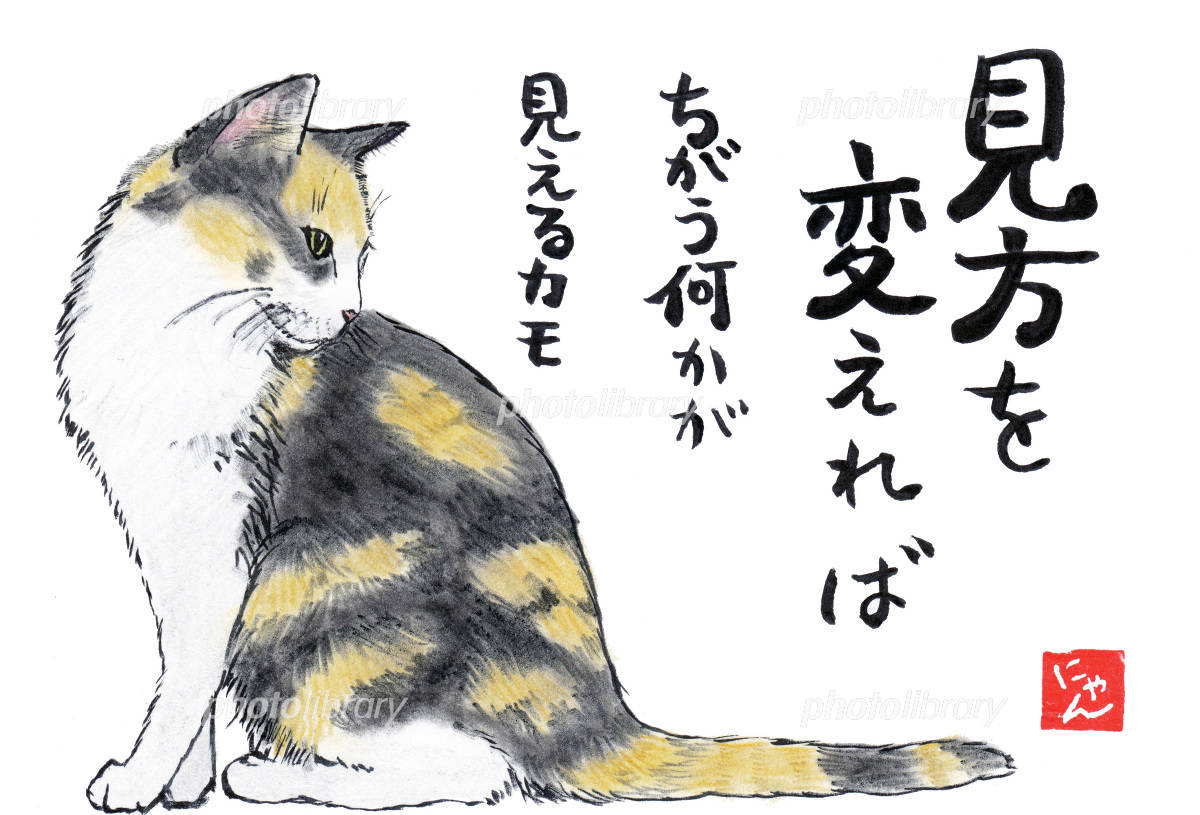 見方を
変えれば
ちがう何かが
見えるカモ
にゃん
photolibrary
photolibrary
photolibrary
photolibrary
photolibrary